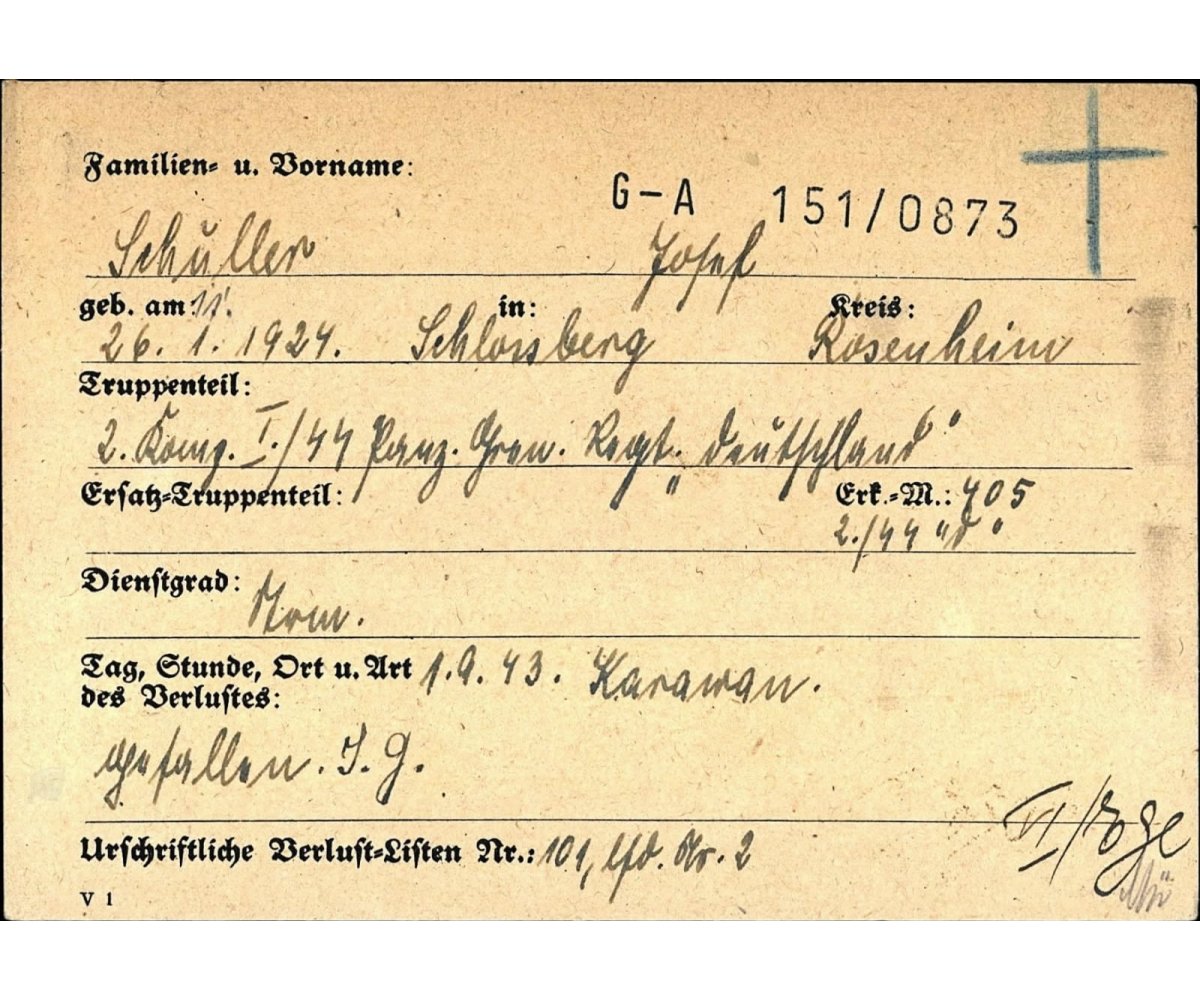 Familien- u. Vorname:
G-A 151/0873
Schüller Josef
geb. am 11. in: Kreis:
26. 1. 1924. Schlossberg Rosenheim
Truppenteil:
2. Komp. I./44 Panz. Gren. Regt. „Deutschland"
Ersatz-Truppenteil: Erk.-M.: 405
2./44 "D"
Dienstgrad:
Strm.
Tag, Stunde, Ort u. Art 1.9.43. Karawan.
des Verlustes:
gefallen. I. G.
Urschriftliche Verlust-Listen Nr.: 101, lfd. Nr. 2
VI/
V 1